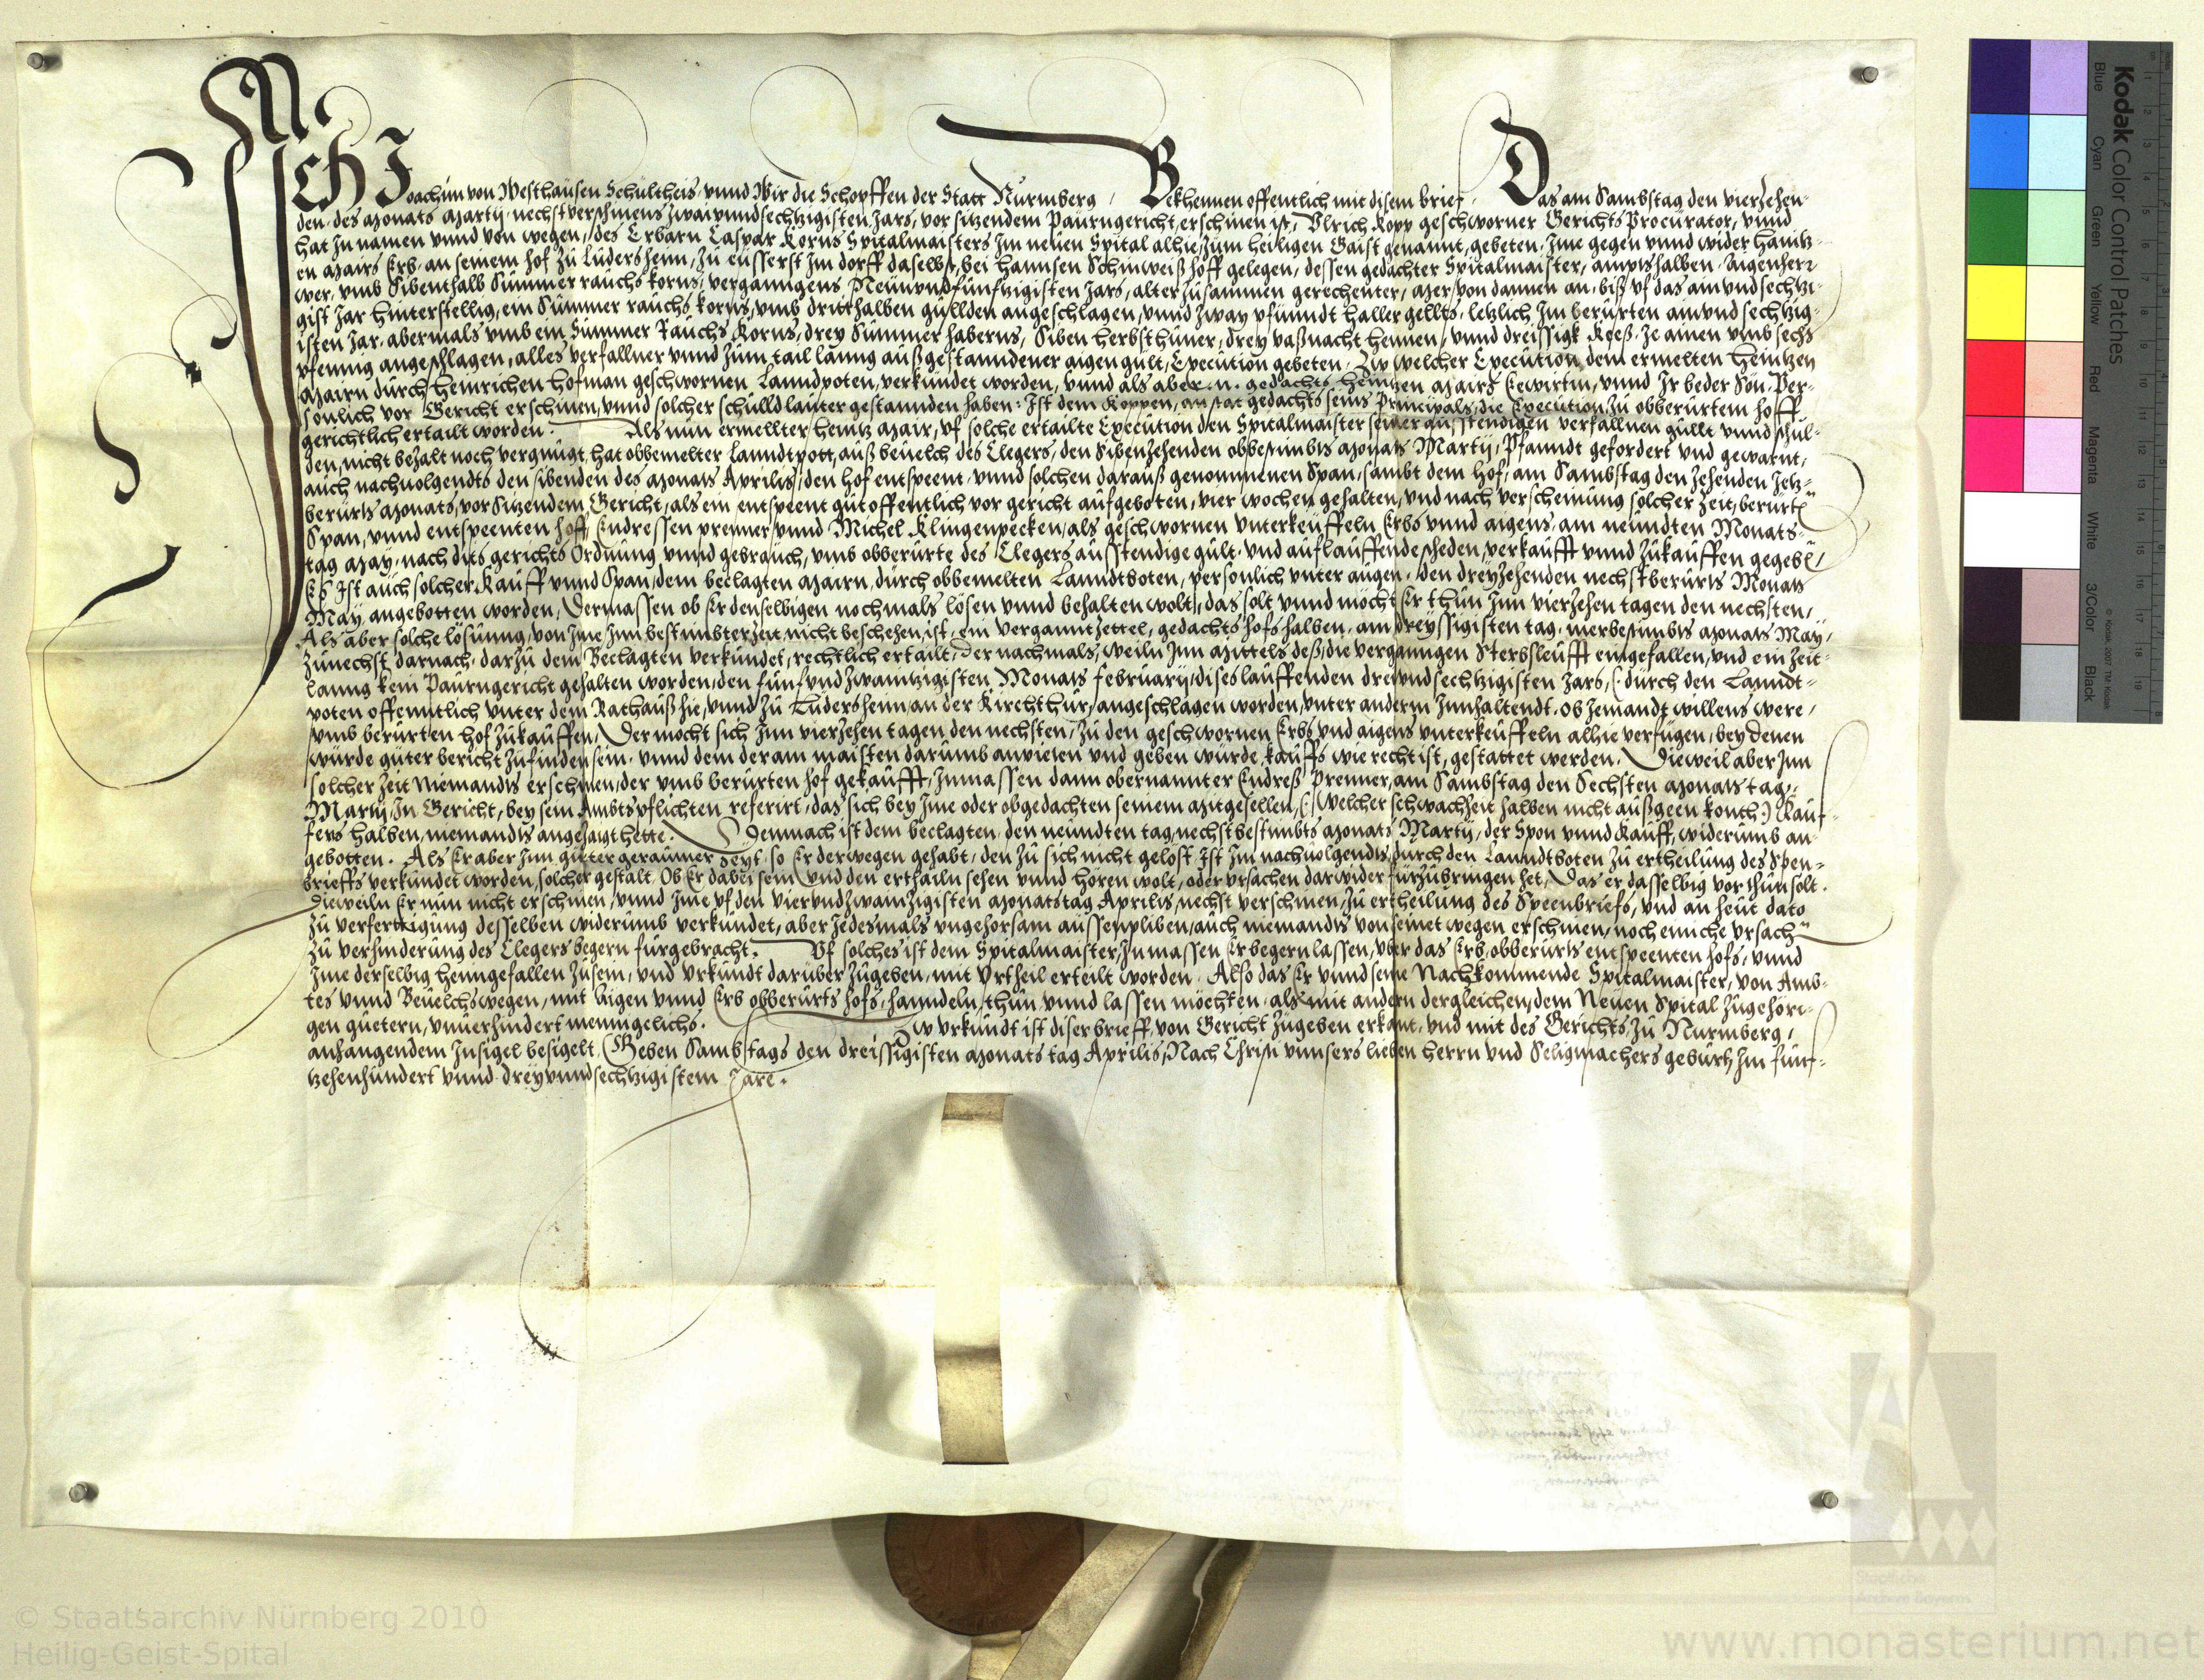 Ich Joachim von Westhausen Schultheis vnnd Wir die Schopffen der Statt Nurmberg, Bekhennen offentlich mit disem brief, Das am Sambstag den vierzehen-
den des Monats Martij nechstverschinens zwaivnndsechtzigisten Jars, vor sitzendem Paurngericht, erschinen ist, Vlrich Kopp geschworner Gerichts Procurator, vnnd
hat In namen vnnd von wegen, des Erbarn Caspar Korns Spitalmaisters Im neuen Spital alhie, zum heiligen Gaist genannt, gebeten, Ime gegen vnnd wider Haintz-
en Mairs Erb, an seinem hof zu Ludersheim, zu eusserst Im dorff daselbst, bei Hannsen Schinweiß hoff gelegen, dessen gedachter Spitalmaister, amptshalben Aigenherr
wer, vmb Sibenthalb Summer rauchs korns, verganngens Neunundfunfftzigisten Jars, alter zusammen gerechenter, von dannen an, biß vf das ainvndsechtzi-
gist Jar hinterstellig, ein Summer rauchs korns, vmb dritthalben gullden angeschlagen, vnnd zway pfunndt haller gellts, letzlich Im berurten ainvnd sechtzig-
isten Jar, abermals vmb ein Summer Rauchs Korns, drey Summer haberns, Siben herbsthuner, drey vaßnacht hennen, vnnd dreissigk Keeß, Je ainen vmb sechs
pfennig angeschlagen, alles verfallner vnnd zum tail lanng außgestanndener aigen gult, Execution gebeten. Zw welcher Execution, dem ermelten Heintzen
Mairn durch Heinrichen Hofman geschwornen Lanndpoten, verkundet worden, vnnd als aber .n. gedachts Heintzen Mairs Eewirtin, vnnd Ir beder Son, Per-
sonlich vor Gericht erschinen, vnnd solcher schulld lauter gestannden haben: Ist dem Koppen, an stat gedachts seins Principals, die Execution, zu obberurtem hoff
gerichtlich ertailt worden. Als nun ermellter Heintz Mair, vf solche ertailte Execution den Spitalmaister seiner ausstendigen verfallnen gullt vnnd schul-
den, nicht bezalt noch vergnugt, hat obbemelter Lanndtpott, auß beuelch des Clegers, den Sibenzehenden obbestimbts Monats Martij, Pfanndt gefordert vnd gewarnt,
auch nachuolgendts den sibenden des Monats Aprilis, den hof entspeent, vnnd solchen darauß genommenen Span, sambt dem hof, am Sambstag den zehenden Jetz-
berurts Monats, vor Sitzendem Gericht, als ein entspeent gut offentlich vor gericht aufgeboten, vier wochen gehalten, vnd nach verscheinung solcher zeit, berurtn
Span, vnnd entspeenten hoff, Endressen prenner, vnnd Michel Klingenpecken, als geschwornen vnterkeuffeln Erbs vnnd aigens, am neundten Monats-
tag May, nach dits gerichts Ordnung vnnd gebrauch, vmb obberurte des Clegers ausstendige gult, vnd auflauffende scheden, verkaufft vnnd zukauffen gegebn,
Es Ist auch solcher Kauff vnnd Span, dem beclagten Mairn, durch obbemelten Lanndtboten, personlich vnter augen, den dreyzehenden nechstberurts Monats
May, angebotten worden, Dermassen ob Er denselbigen nochmals lösen vnnd behalten wolt, das solt vnnd möcht Er thun Inn vierzehen tagen den nechsten,
Als aber solche losunng, von Ime Inn bestimbter zeit nicht beschehen, ist, ein Verganntzettel, gedachts hofs halben, am dreyssigisten tag, merbestimbts Monats May,
zunechst darnach, darzu dem Beclagten verkundet, rechtlich ertailt, Der nachmals, weiln Inn Mittels deß, die verganngen Sterbsleufft eingefallen, vnd ein zeit-
lanng kein Paurngericht gehalten worden, den funfvndzwaintzigisten Monats february, dises lauffenden dreivndsechtzigisten Jars, durch den Lanndt-
poten offenntlich vnter dem Rathauß hie, vnnd zu Ludersheim an der Kirchthur, angeschlagen worden, vnter anderm Innhaltendt, ob Jemandt willens were,
vmb berurten hof zukauffen, Der mocht sich Inn vierzehen tagen den nechsten, zu den geschwornen Erbs vnd aigens vnterkeuffeln alhie verfugen, bey denen
wurde guter bericht zufinden sein, vnnd dem der am maisten darumb anpieten vnd geben wurde, kauffs wie recht ist, gestattet werden. Dieweil aber Inn
solcher zeit Niemandts erschinen, der vmb berurten hof gekaufft, Inmassen dann obernannter Endreß Prenner, am Sambstag den Sechsten Monats tag
Martij, In Gericht, bey sein Ambtspflichten referirt, das sich bey Ime oder obgedachten seinem Mitgesellen, (welcher schwachheit halben nicht außgeen konth) Kauf-
fers halben, niemandts angesagt hette. Demnach ist dem beclagten, den neundten tag, nechstbestimbts Monats Martij, der Spon vnnd Kauff, widerumb an-
gebotten. Als Er aber Inn guter geraumer Zeyt, so Er derwegen gehabt, den zu sich nicht gelöst, Ist Im nachuolgendts, durch den Lanndtboten zu ertheilung des Spen-
brieffs verkundet worden, solcher gestalt, Ob Er dabei sein vnd den ertheiln sehen vnnd horen wolt, oder vrsachen darwider furzubringen het, Das er dasselbig vor thun solt.
Dieweiln Er nun nicht erschinen, vnnd Ime vf den viervndzwaintzigisten Monatstag Aprilis, nechst verschinen, zu ertheilung des Speenbriefs, vnd an heut dato
zu verferttigung desselben widerumb verkundet, aber Jedesmals vngehorsam aussenpliben, auch niemandts von seinet wegen erschinen, noch einiche vrsach
zu verhinderung des Clegers begern furgebracht. Vf solches ist dem Spitalmaister, Inmassen Er begern lassen, vber das Erb, obberurts entspeenten hofs, vnnd
Ime derselbig heimgefallen zusein, vnd vrkundt daruber zugeben, mit Vrtheil erteilt worden. Also das Er vnnd seine Nachkommende Spitalmaister, von Amb-
tes vnnd Beuelchs wegen, mit Aigen vnnd Erb obberurts hofs, hanndeln, thun vnnd lassen möchten, als mit andern dergleichen, dem Neuen Spital zugehöri-
gen guetern, vnuerhindert menigclichs. Zw vrkundt ist diser brieff, von Gericht zugeben erkant, vnd mit des Gerichts, zu Nurmberg,
anhangendem Insigel besigelt, Geben Sambstags den dreissigisten Monats tag Aprilis, Nach Christi vnnsers lieben Herrn vnd Seligmachers geburt, Im funf-
tzehenhundert vnnd dreyvnndsechtzigistem Jare.
Kodak Color Control Patches
© Kodak 2007 TM: Kodak
Blue Cyan Green Yellow Red Magenta White 3/Color Black
Staatliche
Archive Bayerns
© Staatsarchiv Nürnberg 2010
Heilig-Geist-Spital
www.monasterium.net